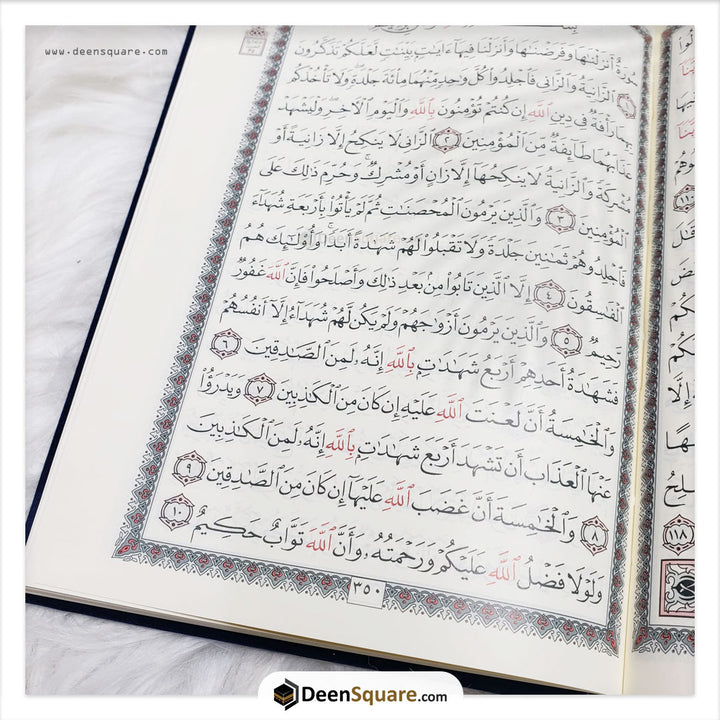 www.deensquare.com
سُورَةٌ أَنزَلْنَٰهَا وَفَرَضْنَٰهَا وَأَنزَلْنَا فِيهَآ ءَايَٰتٍۭ بَيِّنَٰتٍ لَّعَلَّكُمْ تَذَكَّرُونَ
١ ٱلزَّانِيَةُ وَٱلزَّانِى فَٱجْلِدُوا۟ كُلَّ وَٰحِدٍ مِّنْهُمَا مِا۟ئَةَ جَلْدَةٍ وَلَا تَأْخُذْكُم
بِهِمَا رَأْفَةٌ فِى دِينِ ٱللَّهِ إِن كُنتُمْ تُؤْمِنُونَ بِٱللَّهِ وَٱلْيَوْمِ ٱلْءَاخِرِ وَلْيَشْهَدْ
عَذَابَهُمَا طَآئِفَةٌ مِّنَ ٱلْمُؤْمِنِينَ ٢ ٱلزَّانِى لَا يَنكِحُ إِلَّا زَانِيَةً أَوْ
مُشْرِكَةً وَٱلزَّانِيَةُ لَا يَنكِحُهَآ إِلَّا زَانٍ أَوْ مُشْرِكٌ وَحُرِّمَ ذَٰلِكَ عَلَى
ٱلْمُؤْمِنِينَ ٣ وَٱلَّذِينَ يَرْمُونَ ٱلْمُحْصَنَٰتِ ثُمَّ لَمْ يَأْتُوا۟ بِأَرْبَعَةِ شُهَدَآءَ
فَٱجْلِدُوهُمْ ثَمَٰنِينَ جَلْدَةً وَلَا تَقْبَلُوا۟ لَهُمْ شَهَٰدَةً أَبَدًا وَأُو۟لَٰٓئِكَ هُمُ
ٱلْفَٰسِقُونَ ٤ إِلَّا ٱلَّذِينَ تَابُوا۟ مِنۢ بَعْدِ ذَٰلِكَ وَأَصْلَحُوا۟ فَإِنَّ ٱللَّهَ غَفُورٌ
رَّحِيمٌ ٥ وَٱلَّذِينَ يَرْمُونَ أَزْوَٰجَهُمْ وَلَمْ يَكُن لَّهُمْ شُهَدَآءُ إِلَّآ أَنفُسُهُمْ
فَشَهَٰدَةُ أَحَدِهِمْ أَرْبَعُ شَهَٰدَٰتٍۭ بِٱللَّهِ إِنَّهُۥ لَمِنَ ٱلصَّٰدِقِينَ ٦
وَٱلْخَٰمِسَةُ أَنَّ لَعْنَتَ ٱللَّهِ عَلَيْهِ إِن كَانَ مِنَ ٱلْكَٰذِبِينَ ٧ وَيَدْرَؤُا۟
عَنْهَا ٱلْعَذَابَ أَن تَشْهَدَ أَرْبَعَ شَهَٰدَٰتٍۭ بِٱللَّهِ إِنَّهُۥ لَمِنَ ٱلْكَٰذِبِينَ
٨ وَٱلْخَٰمِسَةَ أَنَّ غَضَبَ ٱللَّهِ عَلَيْهَآ إِن كَانَ مِنَ ٱلصَّٰدِقِينَ ٩
وَلَوْلَا فَضْلُ ٱللَّهِ عَلَيْكُمْ وَرَحْمَتُهُۥ وَأَنَّ ٱللَّهَ تَوَّابٌ حَكِيمٌ ١٠
٣٥٠
١١٨
DeenSquare.com